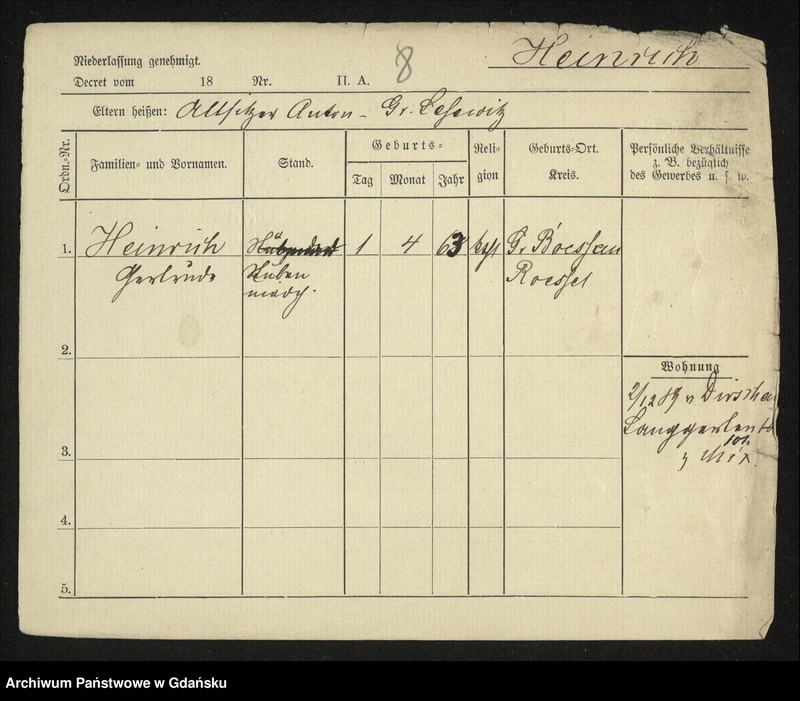 Niederlassung genehmigt.
Decret vom 18 Nr. II. A.
8
Heinrich
Eltern heißen: Altsitzer Anton - Gr. Lesewitz
Ordn.-Nr.
Familien- und Vornamen.
Stand.
Geburts-
Tag
Monat
Jahr
Reli-
gion
Geburts-Ort.
Kreis.
Persönliche Verhältnisse
z. B. bezüglich
des Gewerbes u. s. w.
1.
Heinrich
Gertrude
Stuben
mädch.
1
4
63
kath
Gr Boessau
Roessel
2.
3.
4.
5.
Wohnung
2/12 89 v Dirscha
Langgarten
101.
Mix.